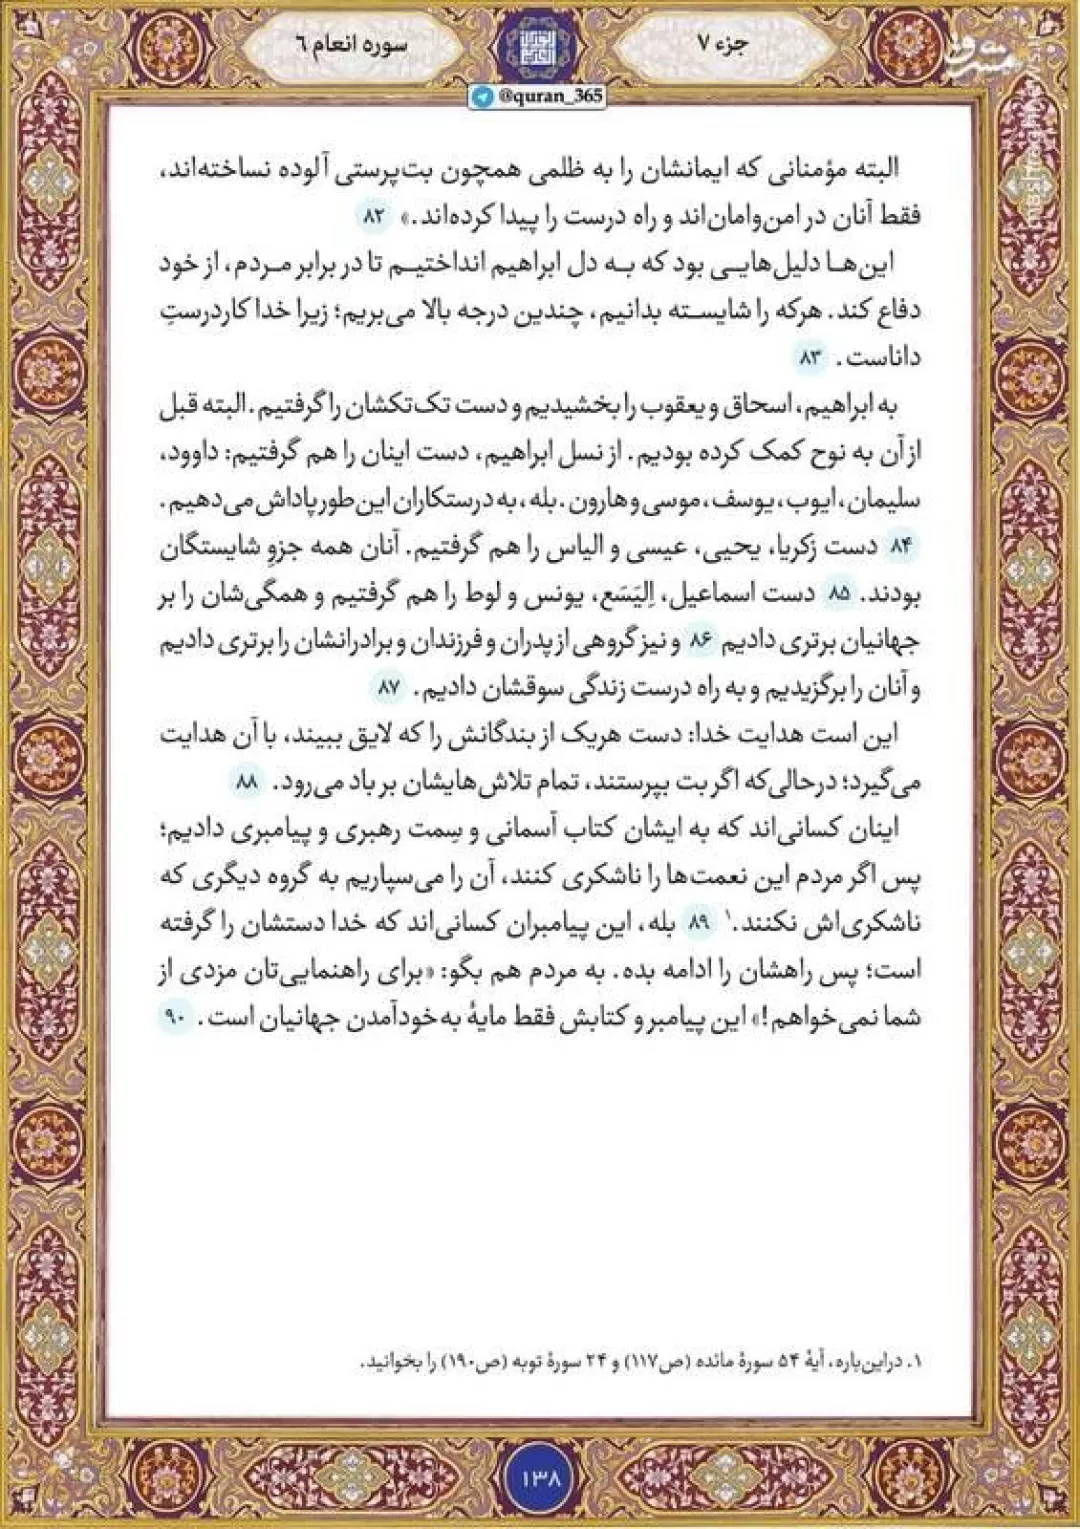 جزء ۷
سوره انعام ۶
مشرق
mashreghnews.ir
@quran_365
البته مؤمنانی که ایمانشان را به ظلمی همچون بت‌پرستی آلوده نساخته‌اند،
فقط آنان در امن‌وامان‌اند و راه درست را پیدا کرده‌اند.» ۸۲
این‌هـا دلیل‌هایـی بود که بـه دل ابراهیم انداختیـم تا در برابر مـردم، از خود
دفاع کند. هرکه را شایسـته بدانیم، چندین درجه بالا می‌بریم؛ زیرا خدا کاردرستِ
داناست. ۸۳
به ابراهیم، اسحاق و یعقوب را بخشیدیم و دست تک‌تکشان را گرفتیم. البته قبل
از آن به نوح کمک کرده بودیم. از نسل ابراهیم، دست اینان را هم گرفتیم: داوود،
سلیمان، ایوب، یوسف، موسی و هارون. بله، به درستکاران این‌طور پاداش می‌دهیم.
۸۴ دست زکریا، یحیی، عیسی و الیاس را هم گرفتیم. آنان همه جزوِ شایستگان
بودند. ۸۵ دست اسماعیل، اِلیَسَع، یونس و لوط را هم گرفتیم و همگی‌شان را بر
جهانیان برتری دادیم ۸۶ و نیز گروهی از پدران و فرزندان و برادرانشان را برتری دادیم
و آنان را برگزیدیم و به راه درست زندگی سوقشان دادیم. ۸۷
این است هدایت خدا: دست هریک از بندگانش را که لایق ببیند، با آن هدایت
می‌گیرد؛ درحالی‌که اگر بت بپرستند، تمام تلاش‌هایشان بر باد می‌رود. ۸۸
اینان کسانی‌اند که به ایشان کتاب آسمانی و سِمت رهبری و پیامبری دادیم؛
پس اگر مردم این نعمت‌ها را ناشکری کنند، آن را می‌سپاریم به گروه دیگری که
ناشکری‌اش نکنند.۱ ۸۹ بله، این پیامبران کسانی‌اند که خدا دستشان را گرفته
است؛ پس راهشان را ادامه بده. به مردم هم بگو: «برای راهنمایی‌تان مزدی از
شما نمی‌خواهم!» این پیامبر و کتابش فقط مایهٔ به خود آمدن جهانیان است. ۹۰
۱. دراین‌باره، آیهٔ ۵۴ سورهٔ مائده (ص۱۱۷) و ۲۴ سورهٔ توبه (ص۱۹۰) را بخوانید.
۱۳۸